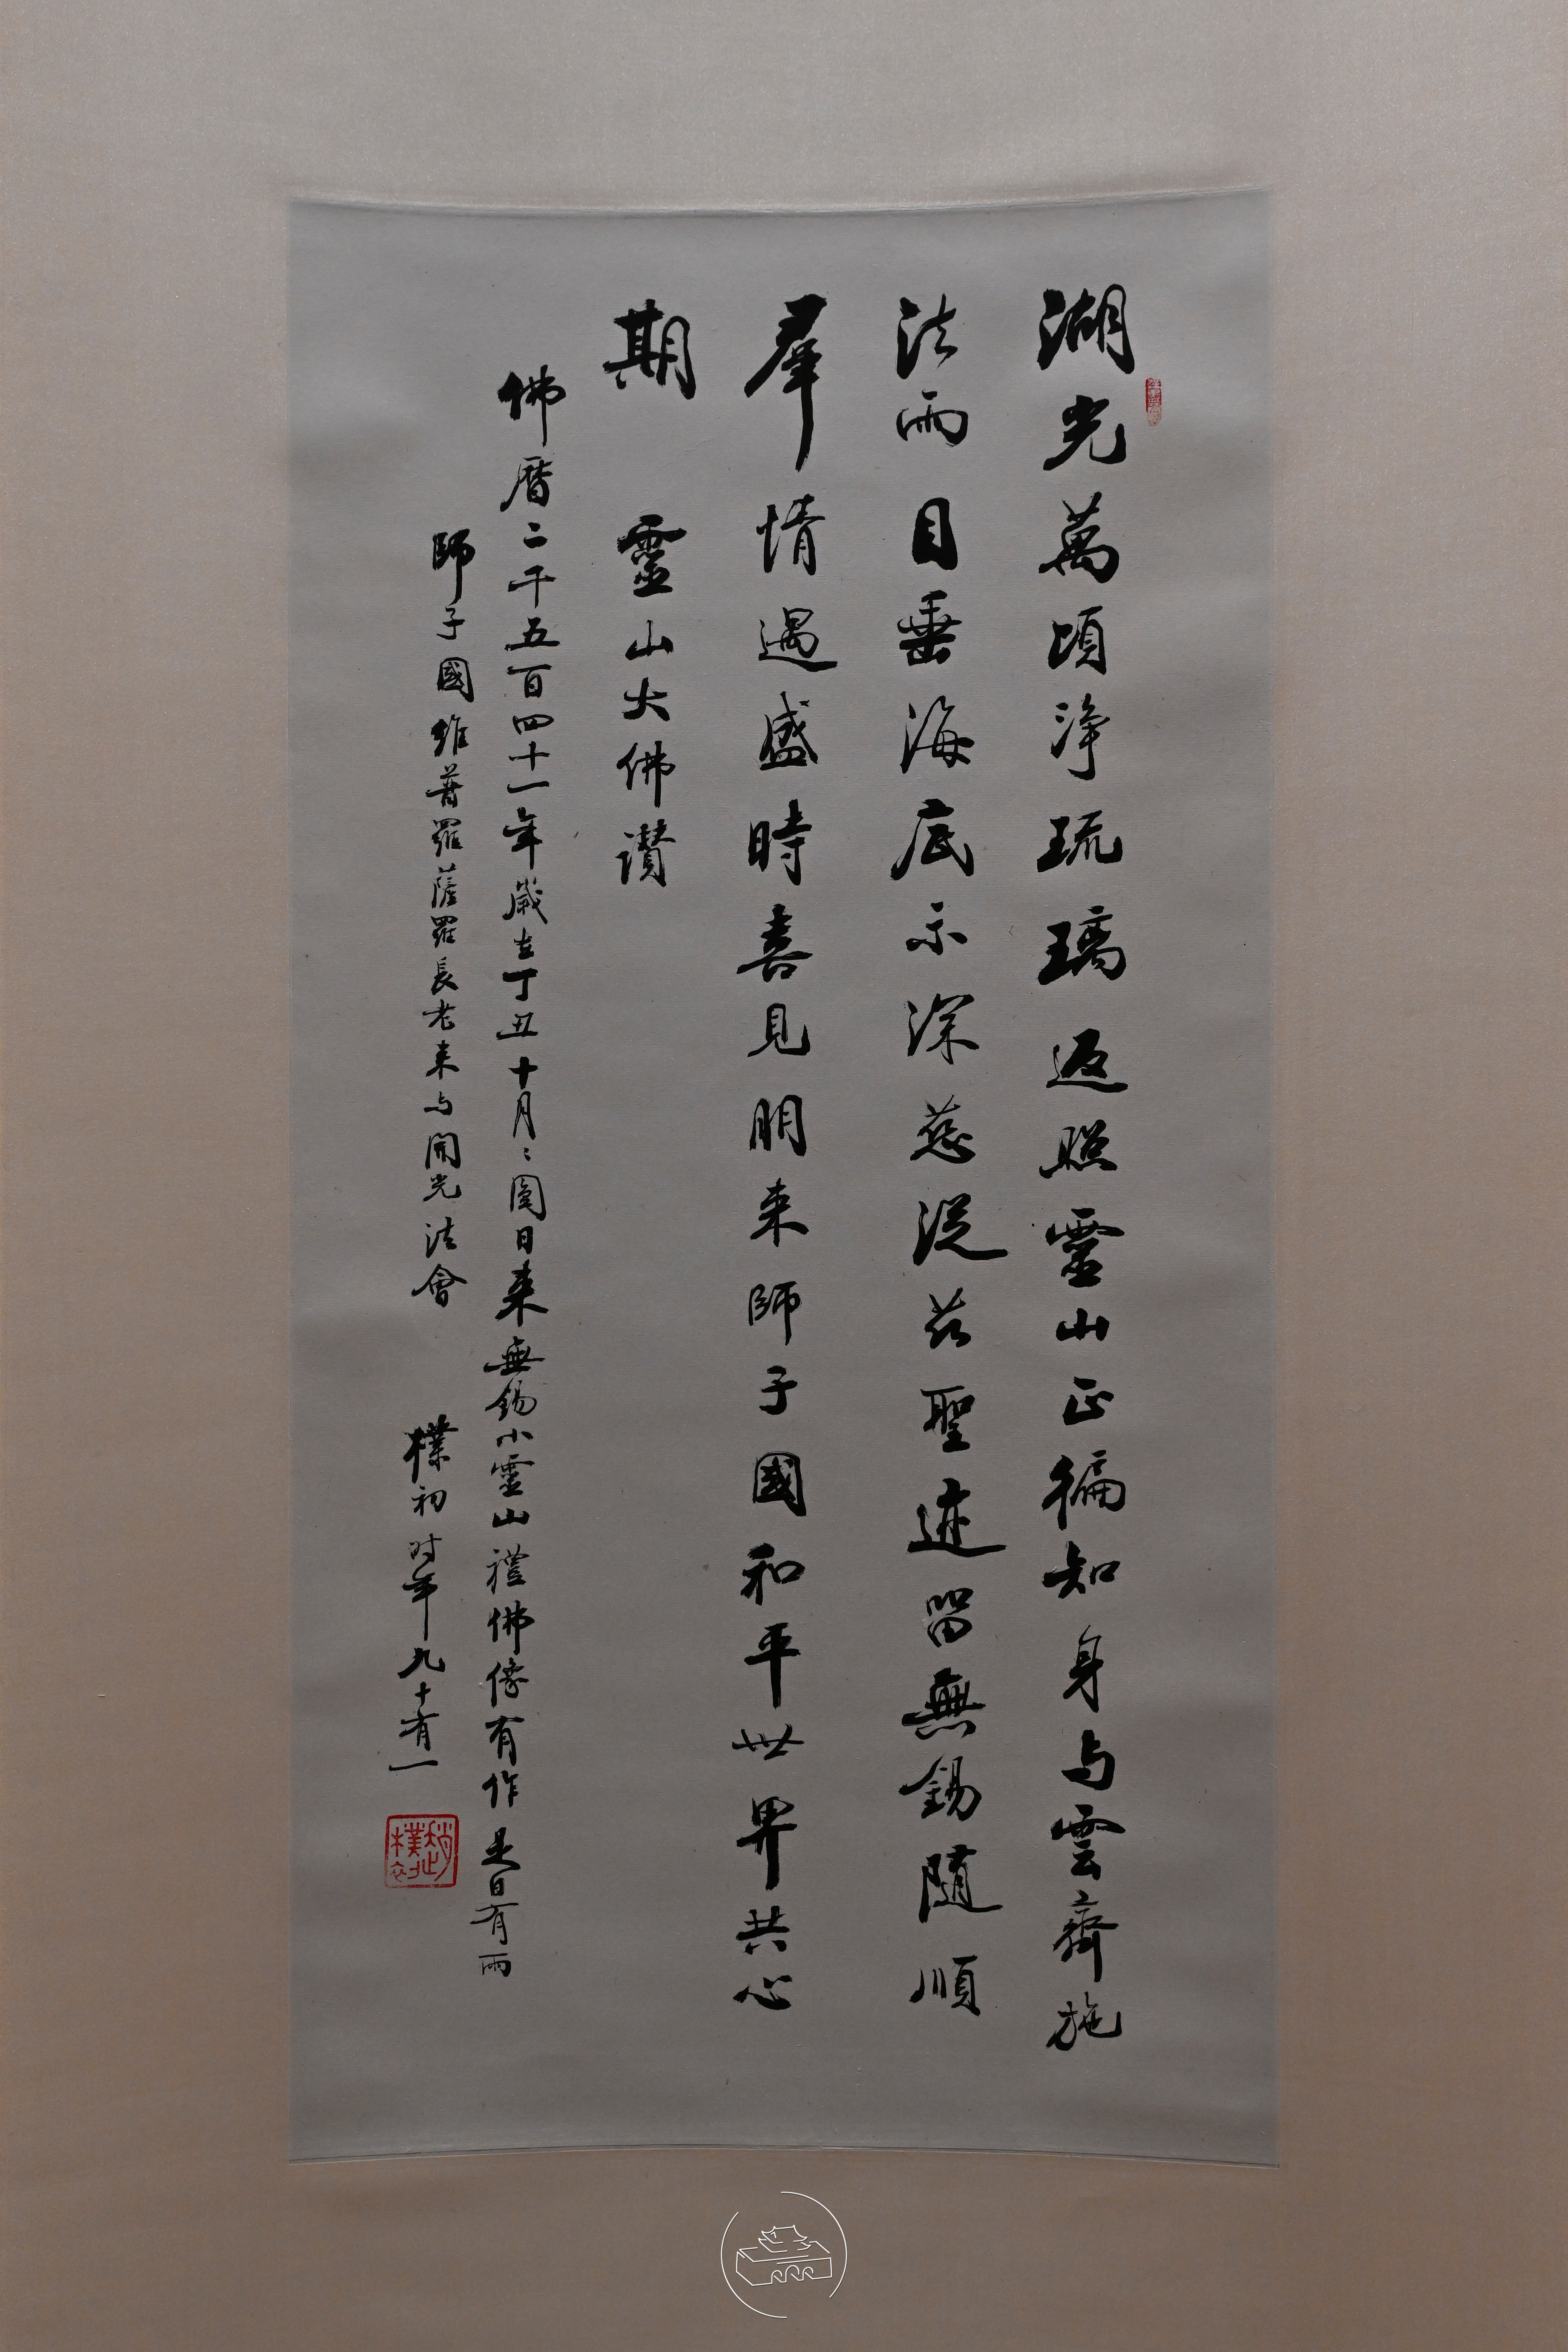 湖光萬頃淨琉璃返照靈山正徧知身与雲齊施
法雨目垂海底示深慈從茲聖迹留無錫隨順
羣情遇盛時喜見朋来師子國和平世界共心
期　靈山大佛讚
佛曆二千五百四十一年歲在丁丑十月〻圓日来無錫小靈山禮佛像有作是日有雨
師子國維普羅薩羅長老来与開光法會
樸初时年九十有一
趙樸初